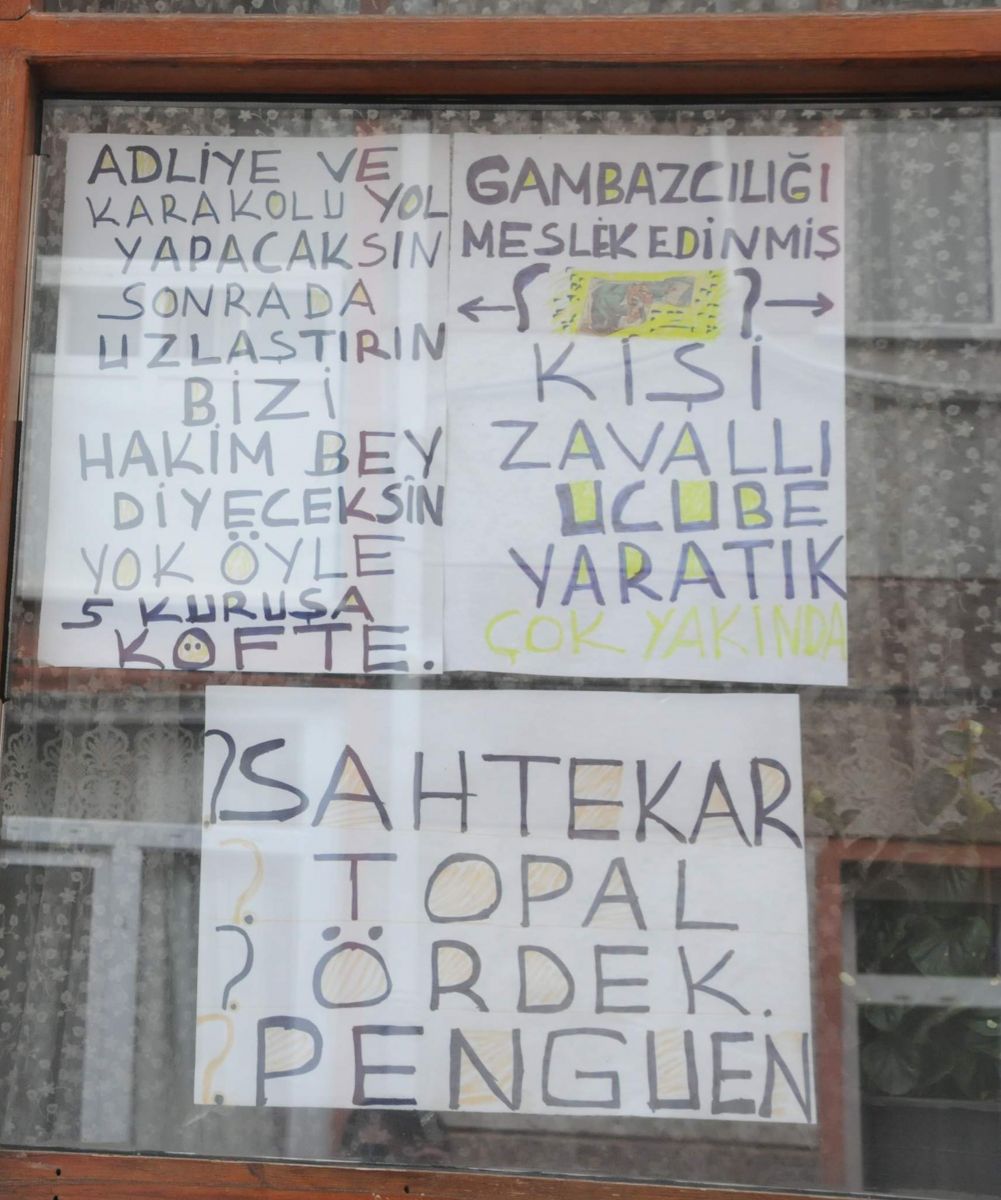 ADLİYE VE
KARAKOLU YOL
YAPACAKSIN
SONRADA
UZLAŞTIRIN
BİZİ
HAKİM BEY
DİYECEKSÎN
YOK ÖYLE
5 KURUŞA
KÖFTE.
GAMBAZCILIĞI
MESLEK EDİNMİŞ
KİŞİ
ZAVALLI
UCUBE
YARATIK
ÇOK YAKINDA
?SAHTEKAR
? TOPAL
? ÖRDEK.
? PENGUEN